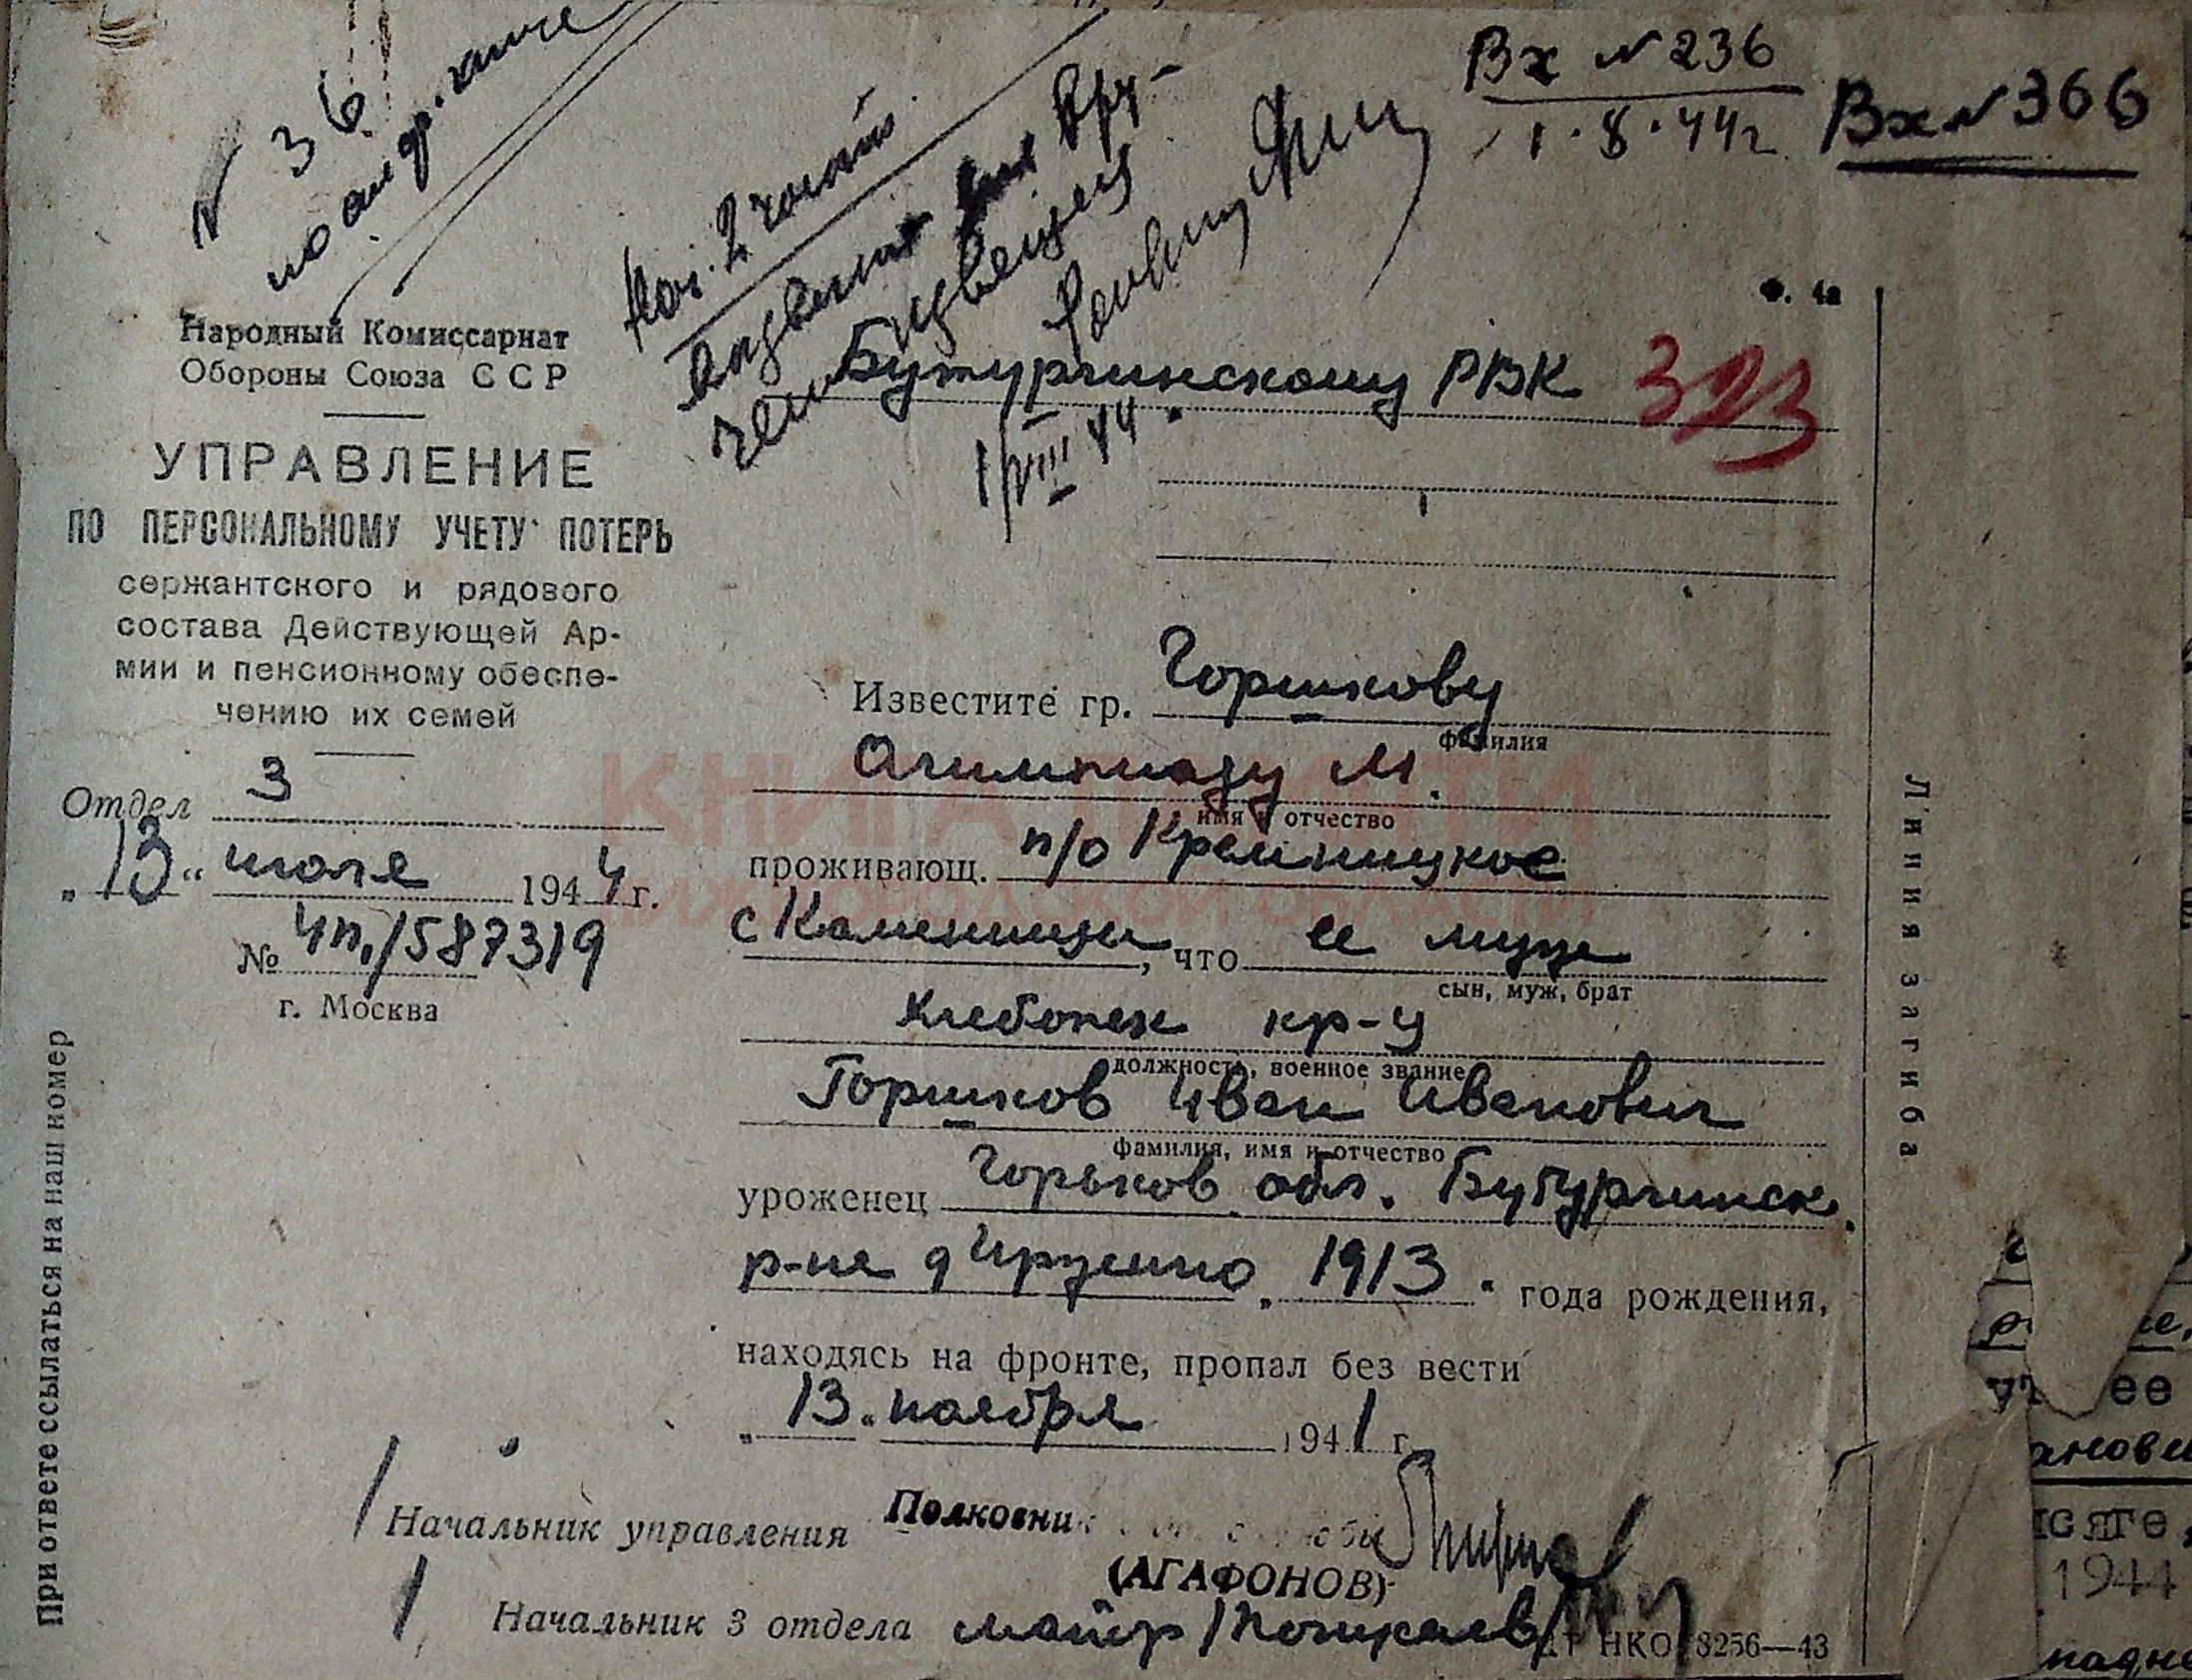 № 36
по алф. книге
Нач. 2 части
Вх № 236
1.8.44г
Вх № 366
1/VIII 44
Ф. 4а
Народный Комиссариат
Обороны Союза ССР
УПРАВЛЕНИЕ
ПО ПЕРСОНАЛЬНОМУ УЧЕТУ ПОТЕРЬ
сержантского и рядового
состава Действующей Ар-
мии и пенсионному обеспе-
чению их семей
Отдел 3
„13“ июля 1944 г.
№ 4п./587319
г. Москва
При ответе ссылаться на наш номер
Бутурлинскому РВК 323
Известите гр. Горшкову
фамилия
Олимпиаду М.
имя и отчество
проживающ. п/о Кремницкое
с Каменищи, что ее муж
сын, муж, брат
Хлебопек кр-ц
должность, военное звание
Горшков Иван Иванович
фамилия, имя и отчество
уроженец Горьков. обл. Бутурлинск.
р-на д Ирзенно „1913“ года рождения,
находясь на фронте, пропал без вести
„13“ ноября 1941 г.
Начальник управления Полковник
(АГАФОНОВ)
Начальник 3 отдела майор
НКО 3256—43
Линия загиба
КНИГА ПАМЯТИ
НИЖЕГОРОДСКОЙ ОБЛАСТИ
1944